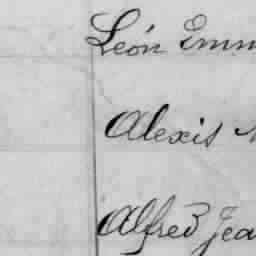 León Emm
Alexis
Alfred Jea